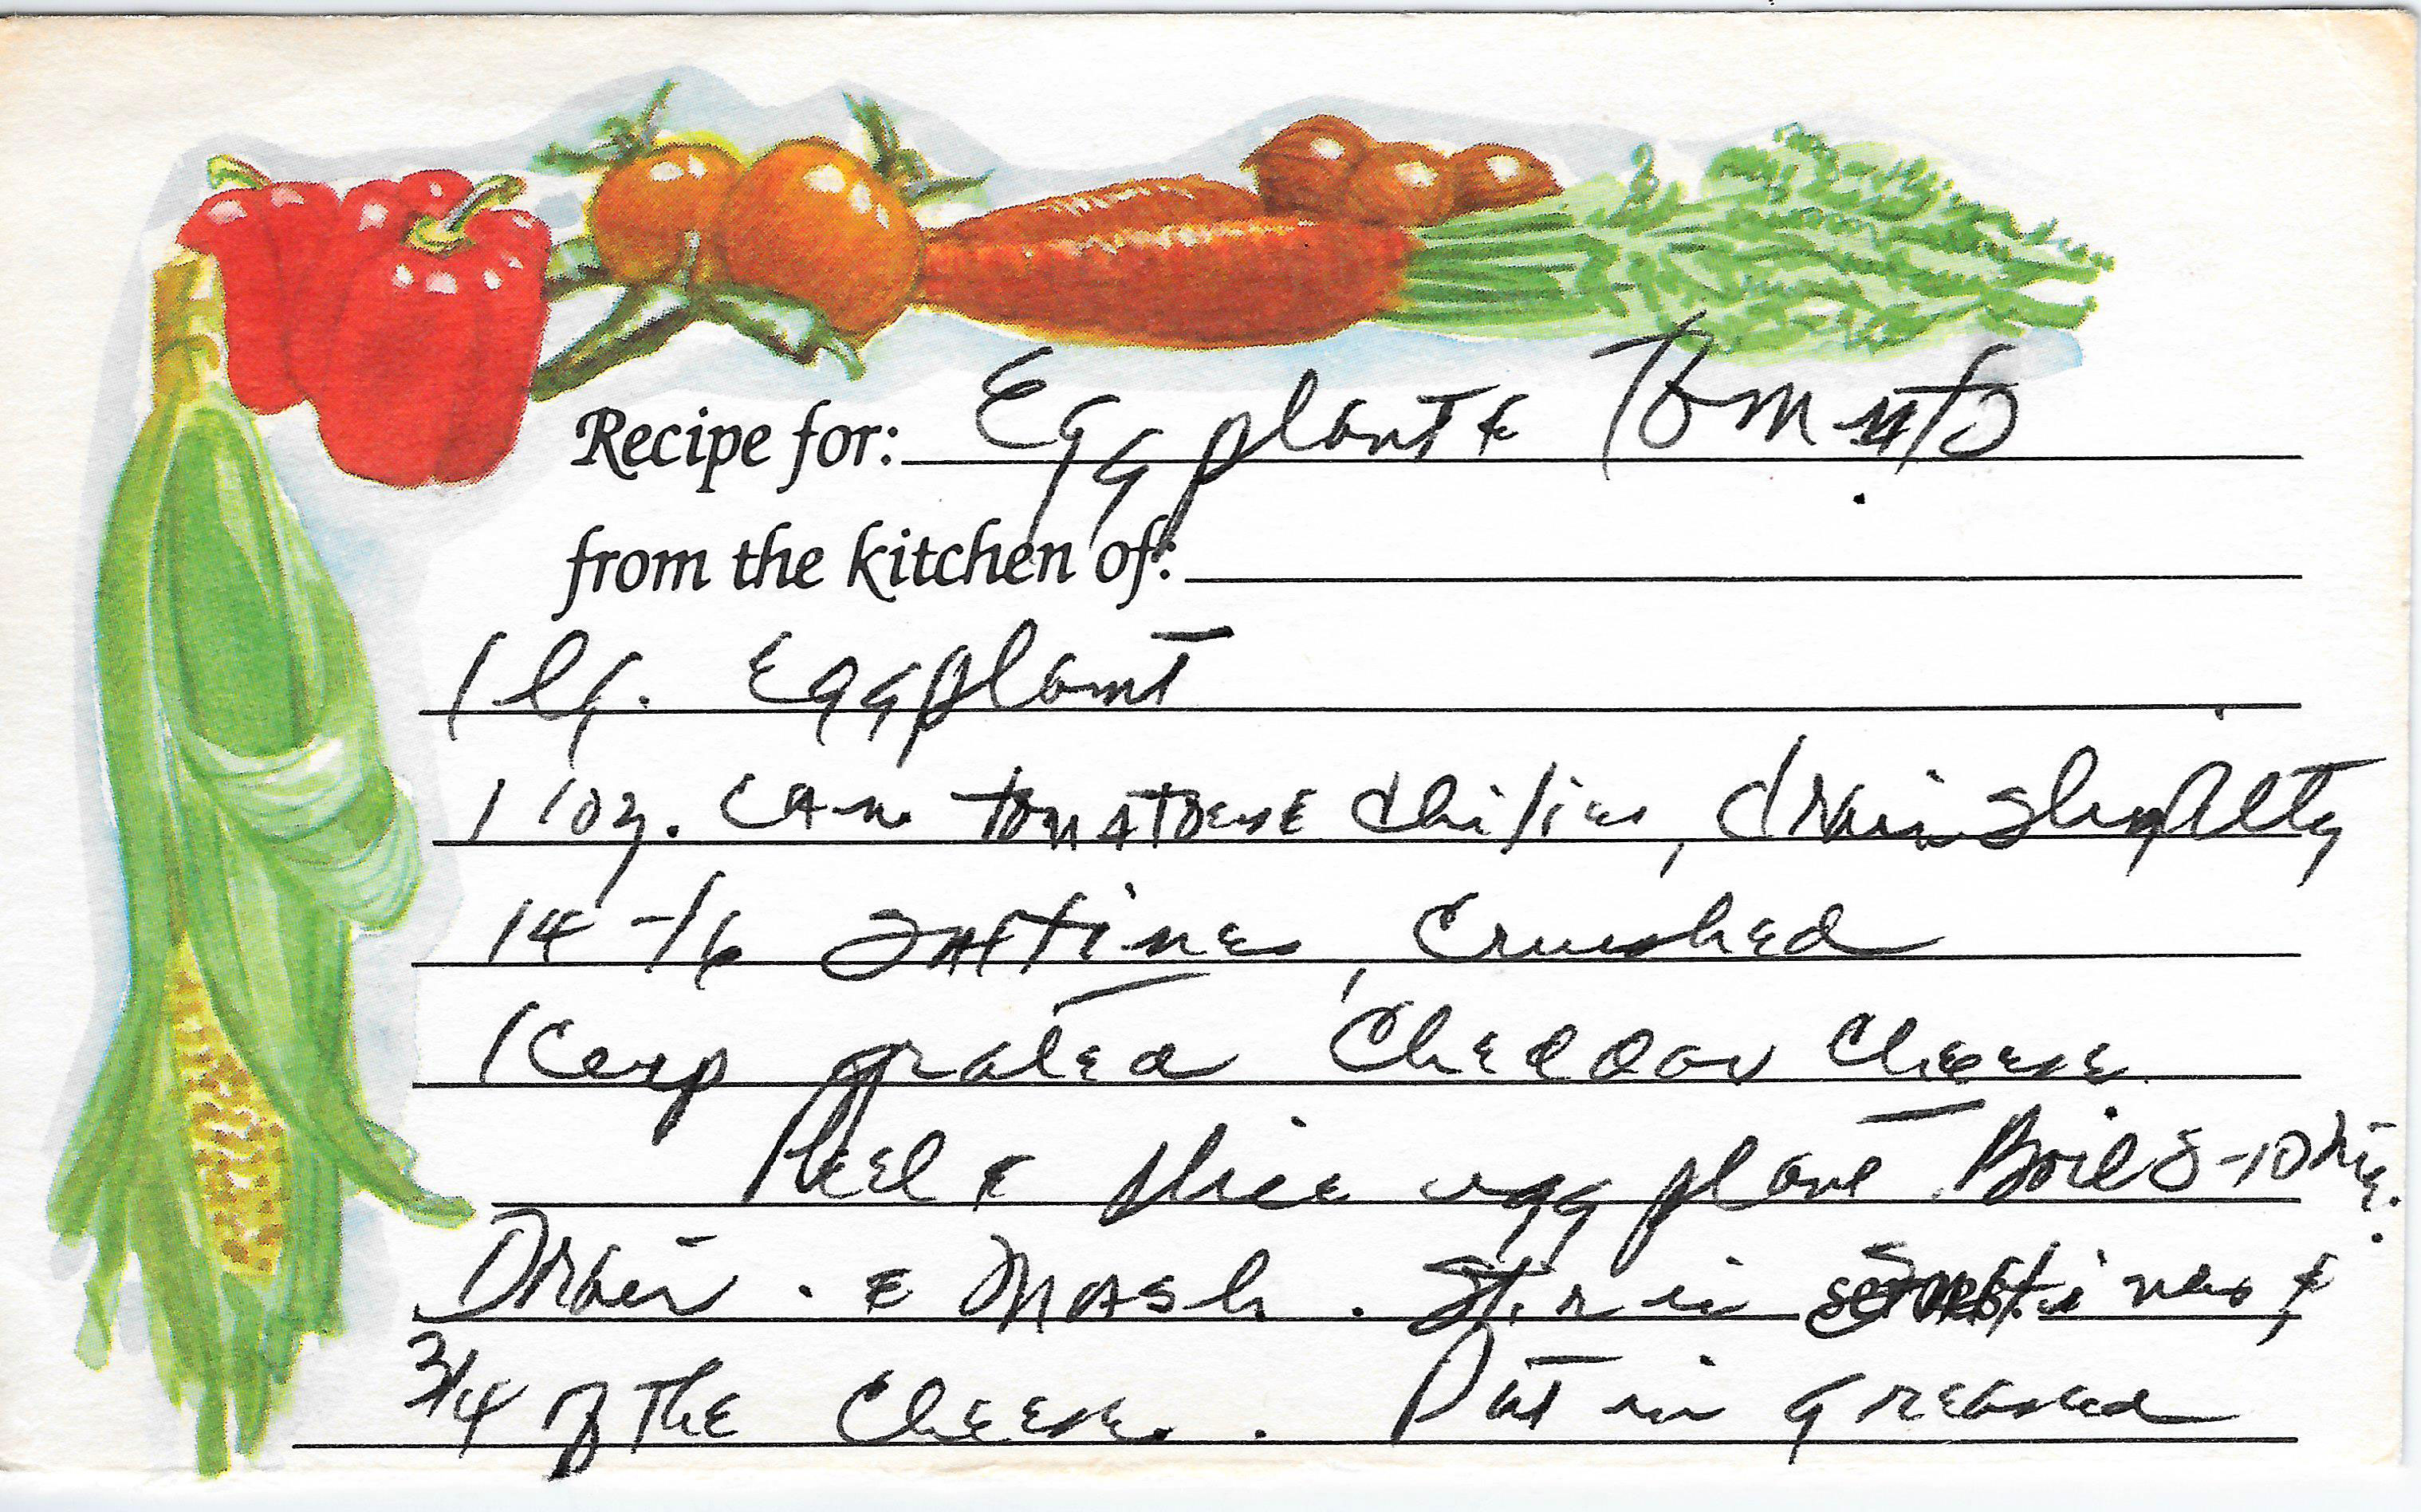 Recipe for: Eggplant & Tomato
from the kitchen of:
1 lg. Eggplant
1 10z. can tomatoes & Chilies, drain slightly
14-16 saltines, Crushed
1 cup grated Cheddar Cheese
Peel & slice eggplant. Boil 8-10 min.
Drain. & Mash. Stir in saltines &
3/4 of the Cheese. Put in greased